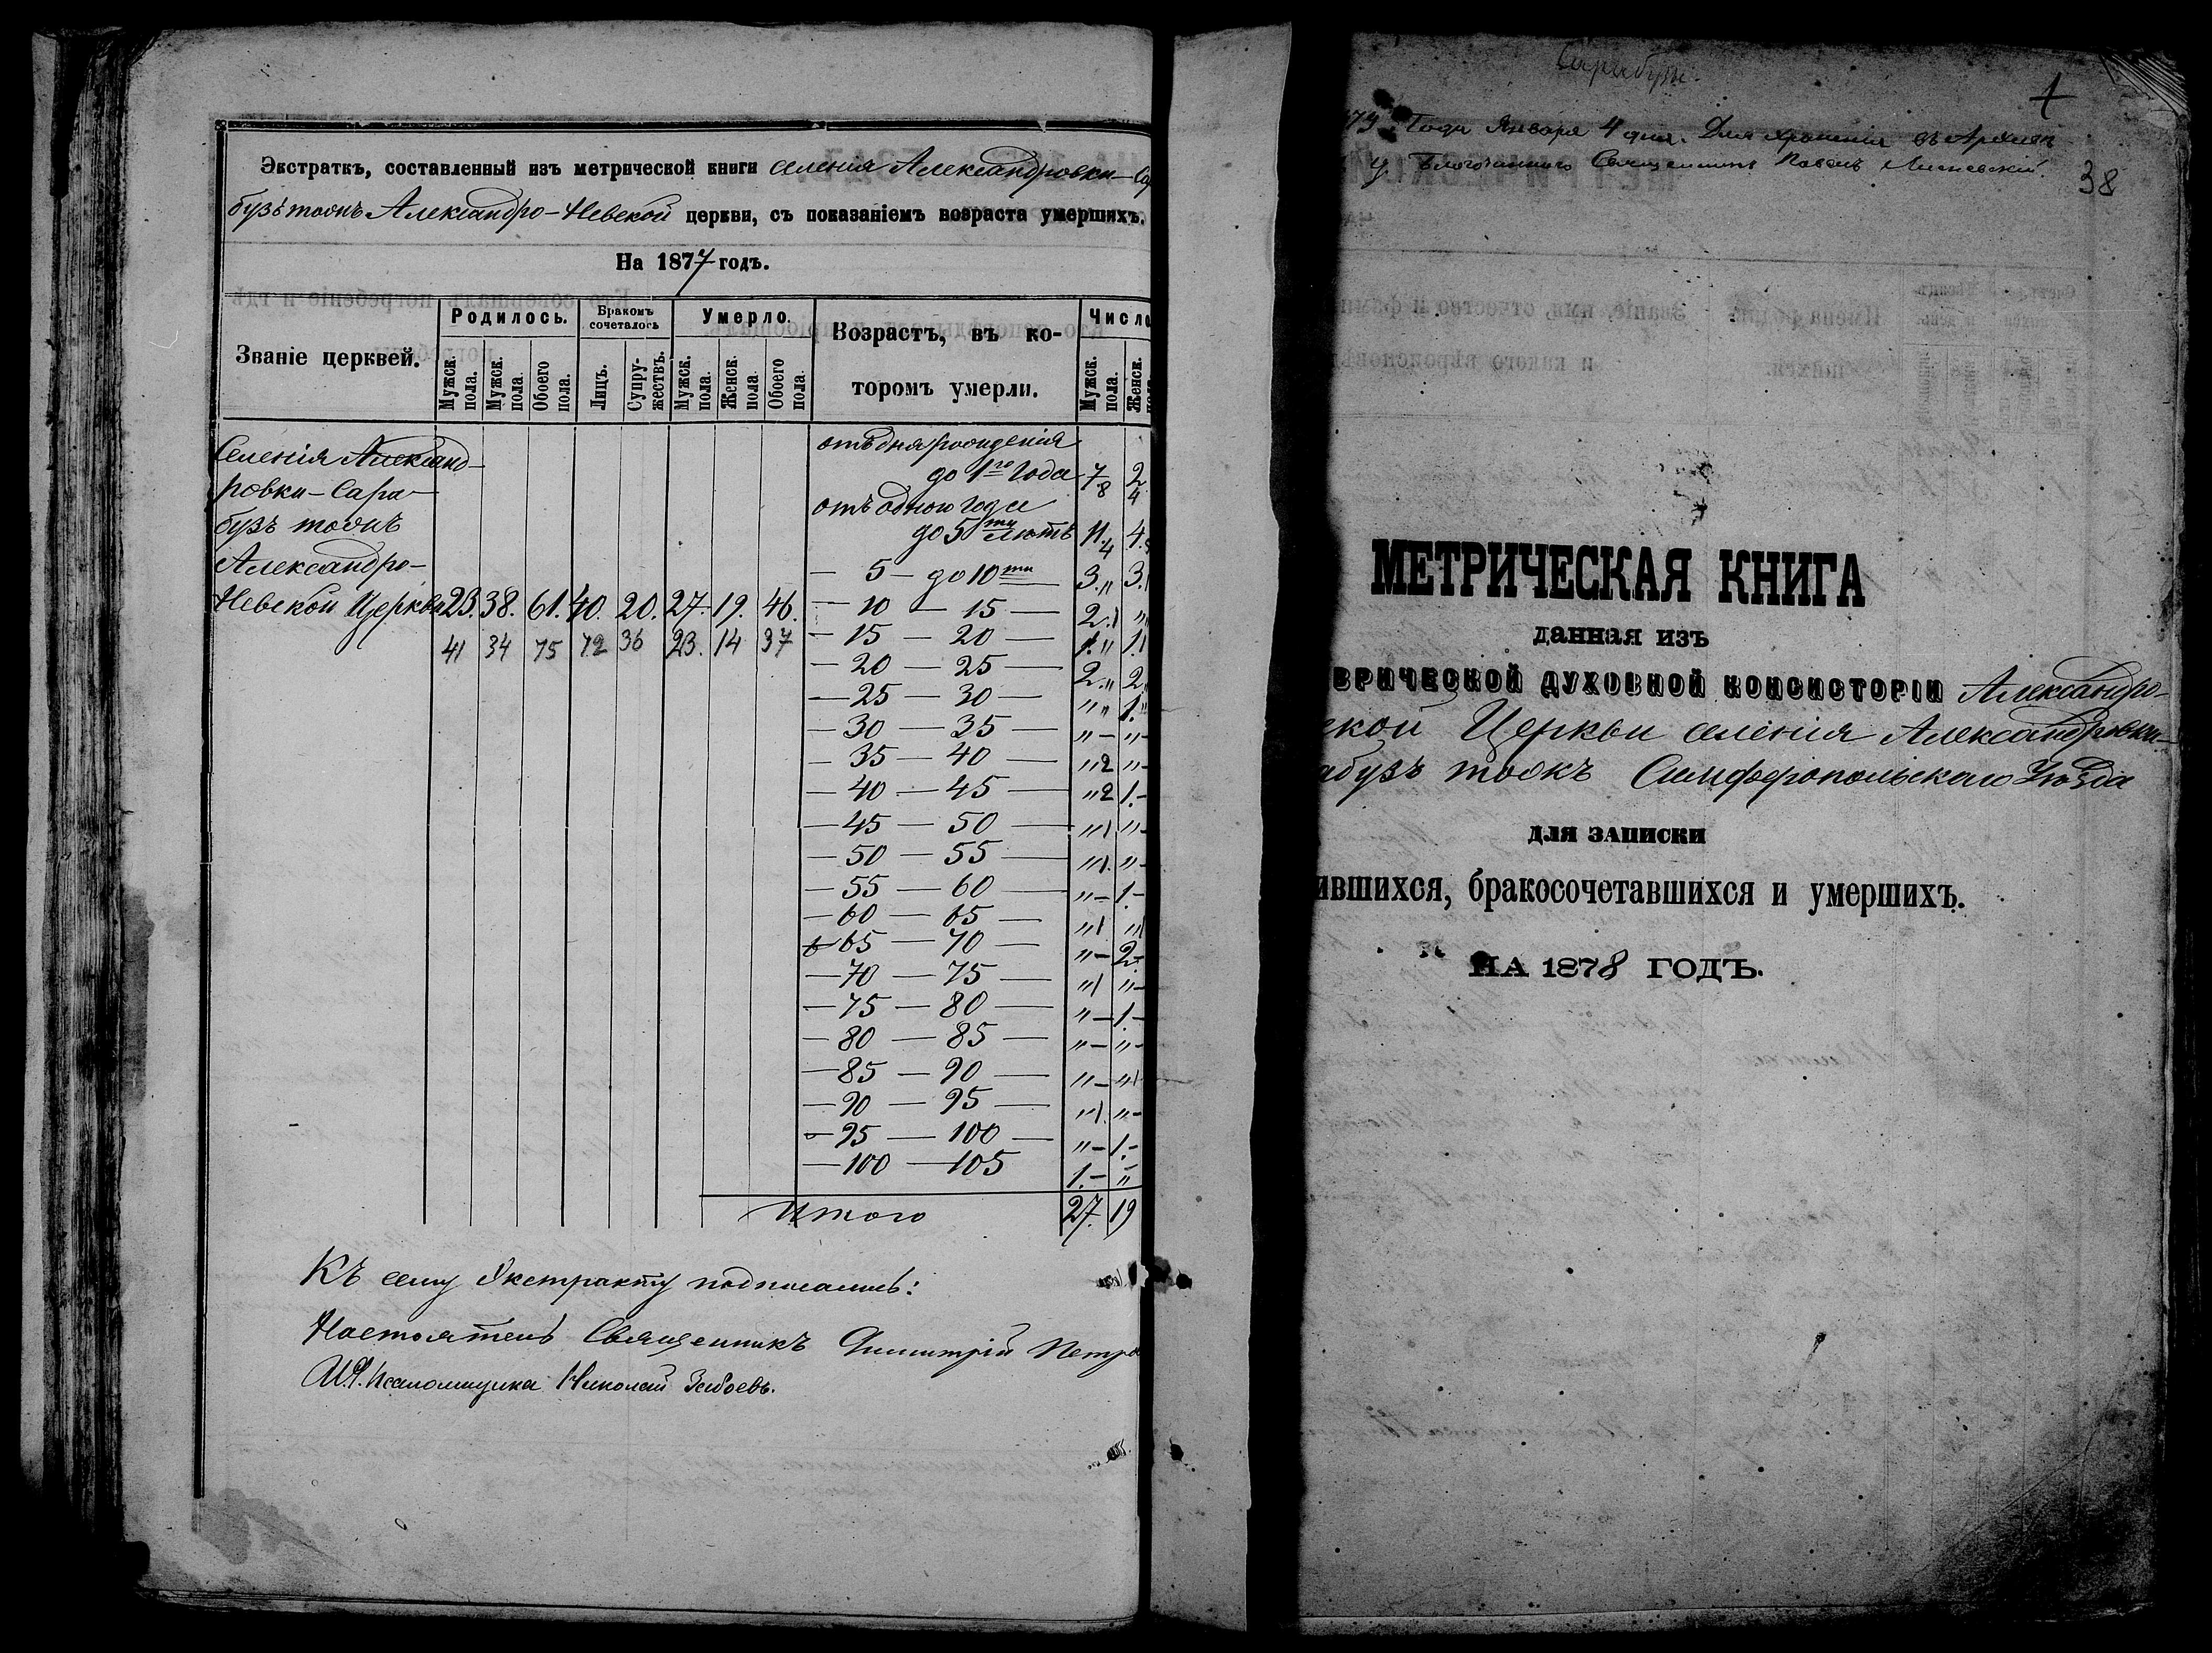 Экстрактъ, составленный изъ метрической книги селенія Александровки-Са
бузъ токъ Александро-Невской церкви, съ показаніемъ возраста умершихъ.
На 1877 годъ.
Званіе церквей.
Родилось.
Бракомъ сочеталось
Умерло.
Возрастъ, въ ко-
торомъ умерли.
Число
Мужск. пола.
Мужск. пола.
Обоего пола.
Лицъ.
Супру-жествъ.
Мужск. пола.
Женск. пола.
Обоего пола.
Мужск. пола.
Женск. пола.
Селенія Александ-
ровки-Сара-
бузъ токъ
Александро-
Невской Церкви 23. 38. 61. 40. 20. 27. 19. 46.
41 34 75 72 36 23. 14 37
отъ дня рожденія
до 1го года 7. 8 2 4
отъ одного года
до 5ти лѣтъ 11. 4 4.
— 5 — до 10ти 3. " 3.
— 10 — 15 — 2. 1 "
— 15 — 20 — 1. " 1. 1
— 20 — 25 — 2. " 2.
— 25 — 30 — " " 1. "
— 30 — 35 — " - " -
— 35 — 40 — " 2 " -
— 40 — 45 — " 2 1. -
— 45 — 50 — " 1 " -
— 50 — 55 — " 1. " -
— 55 — 60 — " - 1. -
— 60 — 65 — " 1 " 1
65 — 70 — " - 2. -
— 70 — 75 — " 1 " -
— 75 — 80 — " - 1. -
— 80 — 85 — " - " -
— 85 — 90 — " - " 1
— 90 — 95 — " 1. " -
— 95 — 100 — " - 1. -
— 100 — 105 1. - "
Итого 27. 19
Къ сему Экстракту подписались:
Настоятель Священникъ Димитрій Петро
И.Д. Псаломщика Николай
Сарабузъ.
1
79 Года Января 4 дня. Для храненія въ Архивъ
у Благочиннаго Священникъ Павелъ
38
МЕТРИЧЕСКАЯ КНИГА
данная изъ
ВРИЧЕСКОЙ ДУХОВНОЙ КОНСИСТОРІИ Александро-
ской Церкви селенія Александровки-
абузъ токъ Симферопольскаго Уѣзда
для записки
ившихся, бракосочетавшихся и умершихъ.
НА 1878 ГОДЪ.